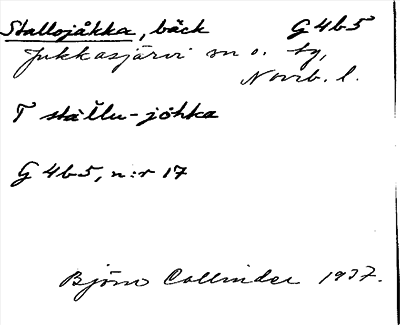 Stallojåkka, bäck G 4b5
Jukkasjärvi sn o. tg,
Norrb. l.
T stállu-johka
G 4b5, n:r 17
Björn Collinder 1937.